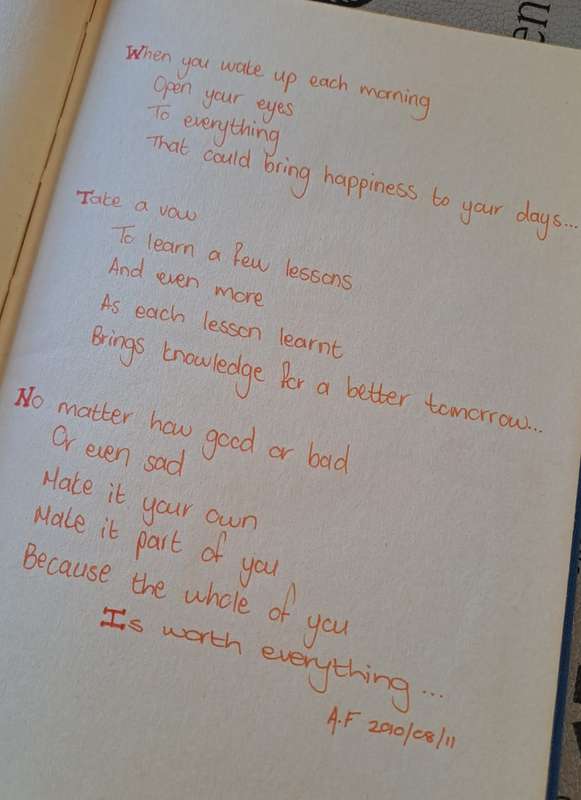 When you wake up each morning
Open your eyes
To everything
That could bring happiness to your days...
Take a vow
To learn a few lessons
And even more
As each lesson learnt
Brings knowledge for a better tomorrow...
No matter how good or bad
Or even sad
Make it your own
Make it part of you
Because the whole of you
Is worth everything...
A.F 2010/08/11
en